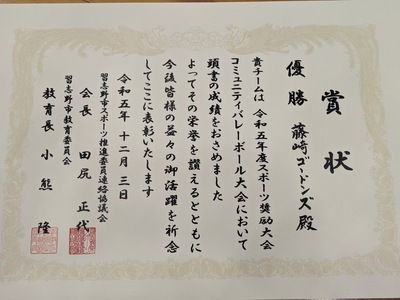 賞状
優勝 藤崎ゴードンズ殿
貴チームは 令和五年度スポーツ奨励大会
コミュニティバレーボール大会において
頭書の成績をおさめました
よってその栄誉を讃えるとともに
今後皆様の益々の御活躍を祈念
してここに表彰いたします
令和五年 十二月 三日
習志野市スポーツ推進委員連絡協議会
会長 田尻 正代
習志野市教育委員会
教育長 小熊 隆